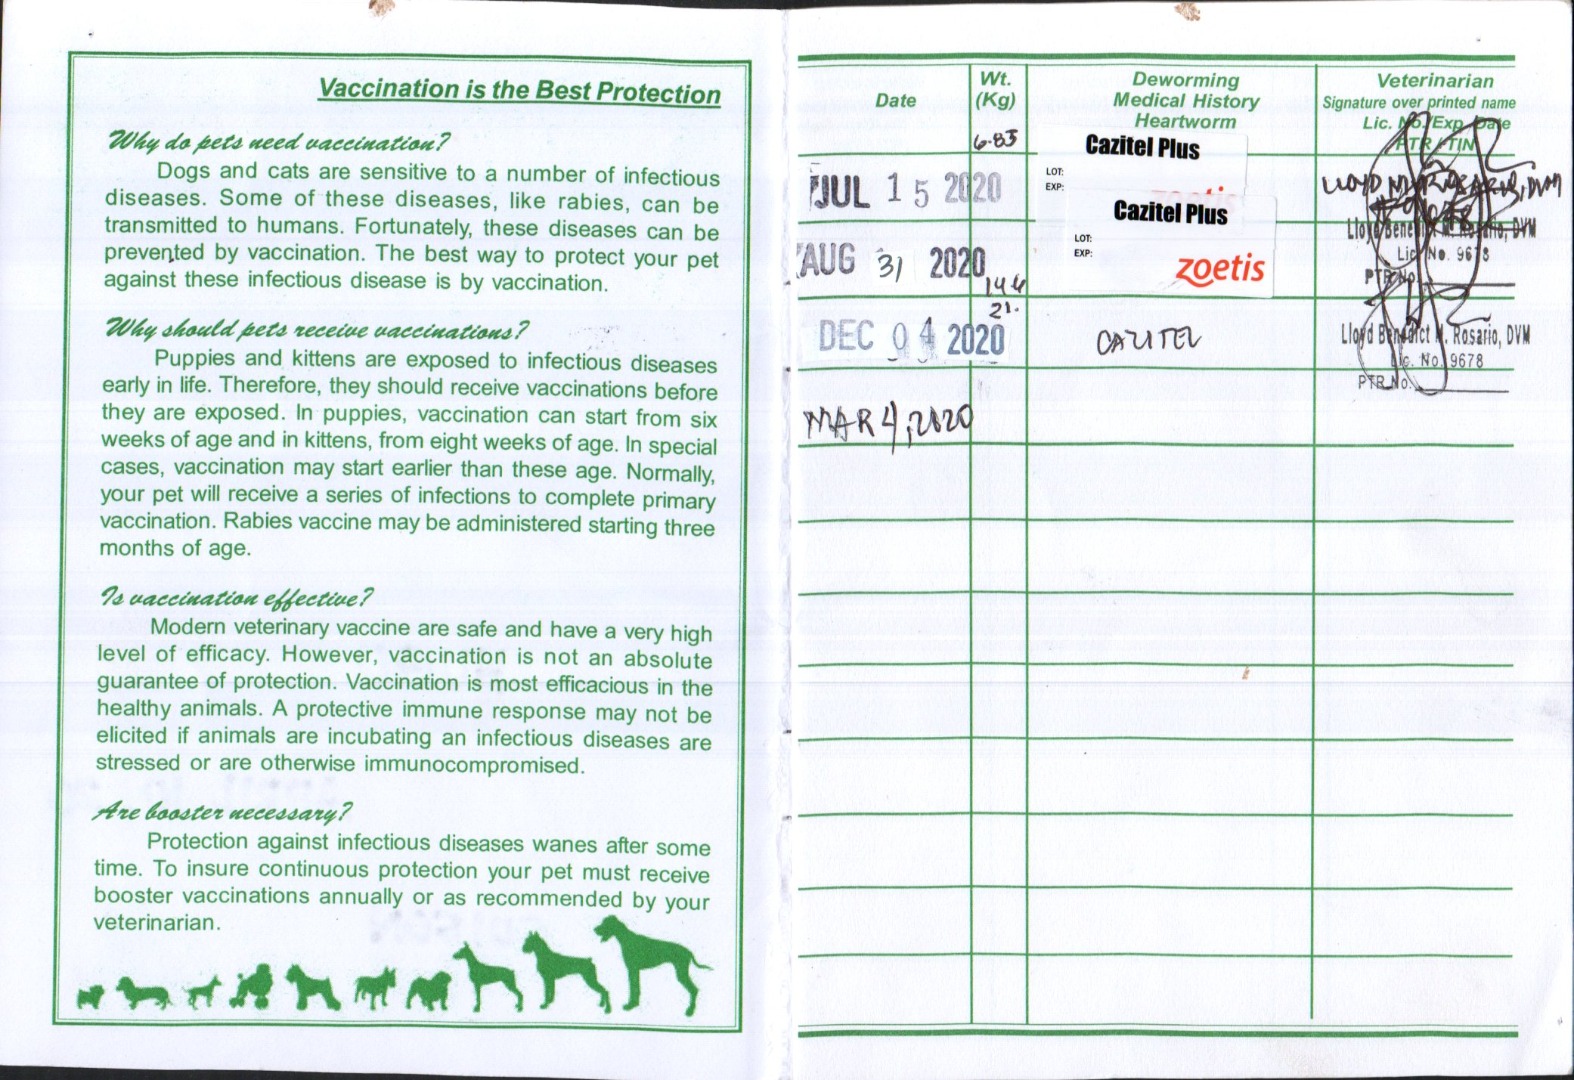 Vaccination is the Best Protection
Why do pets need vaccination?
Dogs and cats are sensitive to a number of infectious
diseases. Some of these diseases, like rabies, can be
transmitted to humans. Fortunately, these diseases can be
prevented by vaccination. The best way to protect your pet
against these infectious disease is by vaccination.
Why should pets receive vaccinations?
Puppies and kittens are exposed to infectious diseases
early in life. Therefore, they should receive vaccinations before
they are exposed. In puppies, vaccination can start from six
weeks of age and in kittens, from eight weeks of age. In special
cases, vaccination may start earlier than these age. Normally,
your pet will receive a series of infections to complete primary
vaccination. Rabies vaccine may be administered starting three
months of age.
Is vaccination effective?
Modern veterinary vaccine are safe and have a very high
level of efficacy. However, vaccination is not an absolute
guarantee of protection. Vaccination is most efficacious in the
healthy animals. A protective immune response may not be
elicited if animals are incubating an infectious diseases are
stressed or are otherwise immunocompromised.
Are booster necessary?
Protection against infectious diseases wanes after some
time. To insure continuous protection your pet must receive
booster vaccinations annually or as recommended by your
veterinarian.
Date
Wt.
(Kg)
Deworming
Medical History
Heartworm
Veterinarian
Signature over printed name
Lic. No./Exp. Date
PTR / TIN
JUL 15 2020
6.85
Cazitel Plus
LOT:
EXP:
zoetis
AUG 31 2020
Cazitel Plus
LOT:
EXP:
zoetis
Lloyd Benedict M. Rosario, DVM
Lic. No. 9678
PTR No.
DEC 04 2020
21.
CAZITEL
Lloyd Benedict M. Rosario, DVM
Lic. No. 9678
PTR No.
MAR 4, 2020